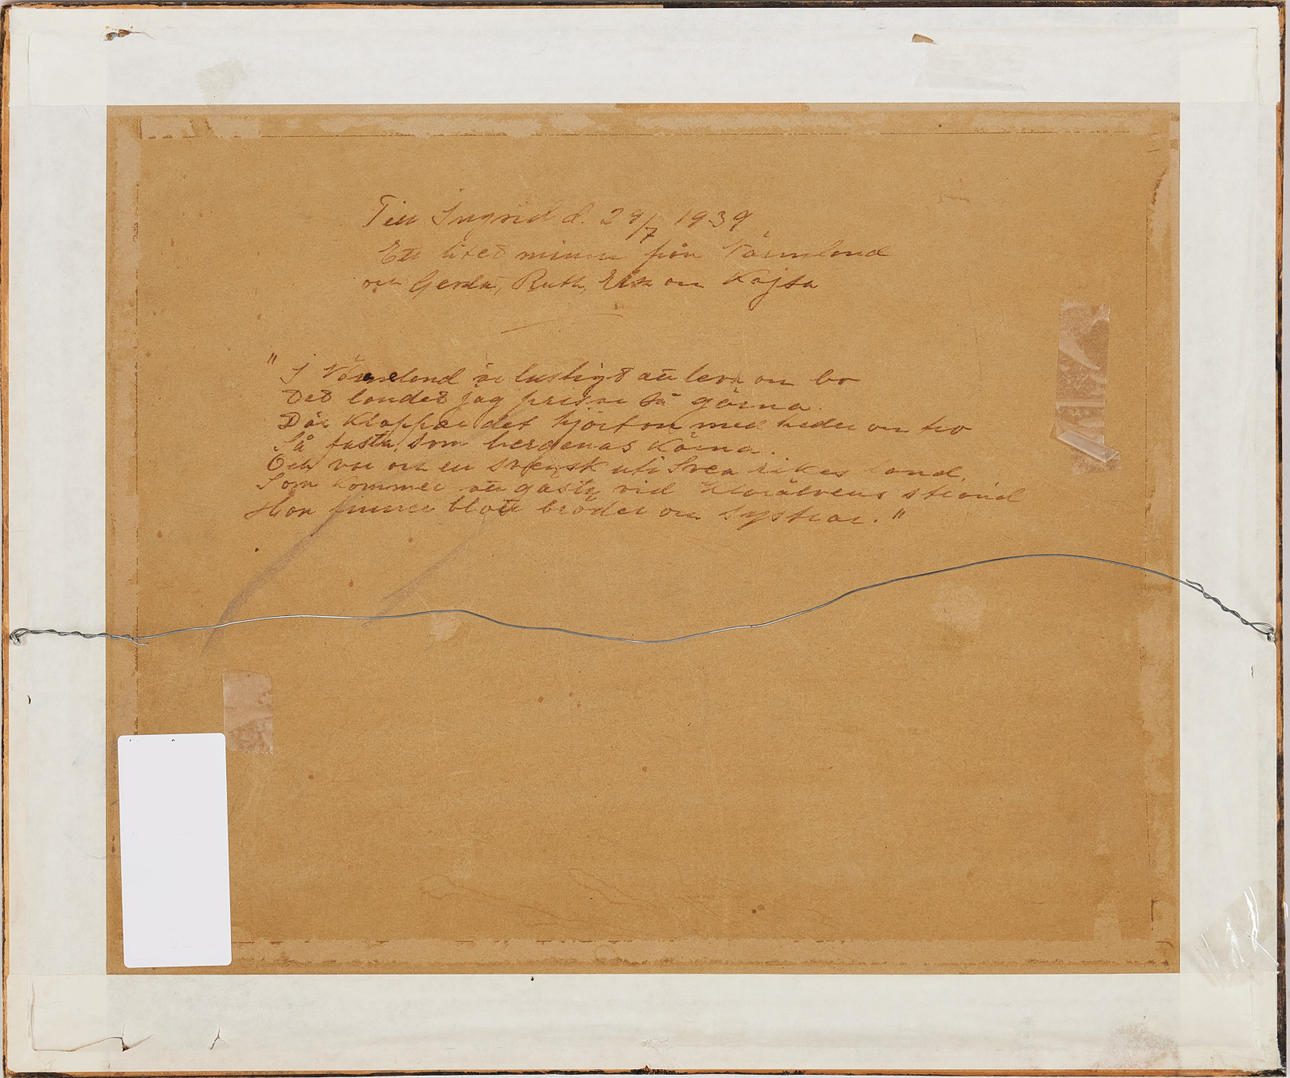 Till Ingrid d. 29/7 1939
Ett litet minne från Värmland
och Gerda, Ruth, Erik och Kajsa
"I Värmeland är lustigt att leva och bo
Det landet jag prisar så gärna.
Där klappar det hjärtan med heder och tro
Så fasta, som bergenas kärna.
Och var och en svensk uti Svea rikes land,
Som kommer att gästa vid Klarälvens strand
Han finner blott bröder och systrar."